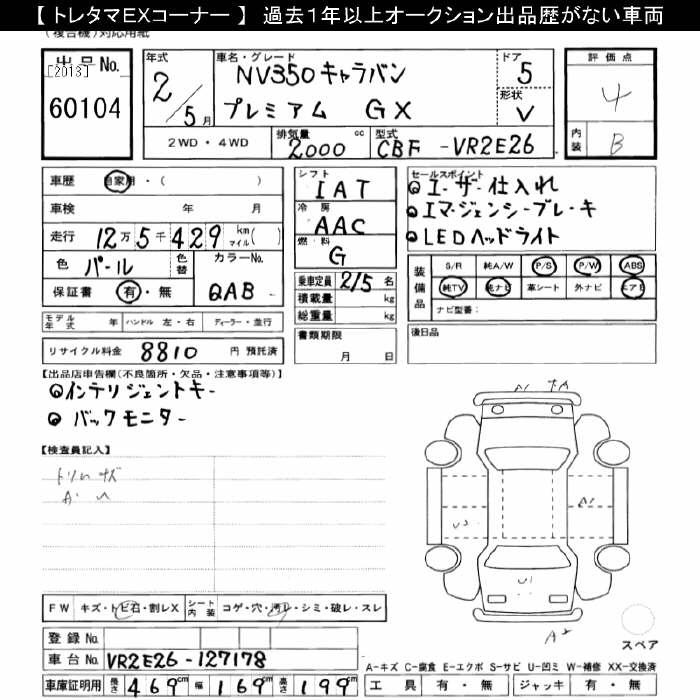 【 トレタマEXコーナー 】 過去1年以上オークション出品歴がない車両
(複合機)対応用紙
出品No.
[2013]
60104
年式
2/5月
車名・グレード
NV350キャラバン
プレミアム GX
ドア
5
形状
V
評価点
4
内装
B
2WD・4WD
排気量
2000 cc
型式
CBF -VR2E26
車歴 自家用・( )
車検 年 月
走行 12万5千429 km マイル( )
色 パール 色替
カラーNo.
QAB
保証書 有・無
シフト
IAT
冷房
AAC
燃料
G
乗車定員 2/5 名
積載量 kg
総重量 kg
書類期限
月 日
セールスポイント
◎ユーザー仕入れ
◎エマージェンシーブレーキ
◎LEDヘッドライト
装備品
S/R 純A/W P/S P/W ABS
純TV 純ナビ 革シート 外ナビ エアB
ナビ型番:
後日品
モデル年式 年 ハンドル 左・右 ディーラー・並行
リサイクル料金 8810 円 預託済
【出品店申告欄(不良箇所・欠品・注意事項等)】
◎インテリジェントキー
◎バックモニター
【検査員記入】
A1
U1
A2
FW キズ・トビ石・割レX シート内装 コゲ・穴・汚レ・シミ・破レ・スレ
登録No.
車台No. VR2E26-127178
車庫証明用 長さ 469cm 幅 169cm 高さ 199cm
スペア
A-キズ C-腐食 E-エクボ S-サビ U-凹ミ W-補修 XX-交換済
工具 有・無 ジャッキ 有・無